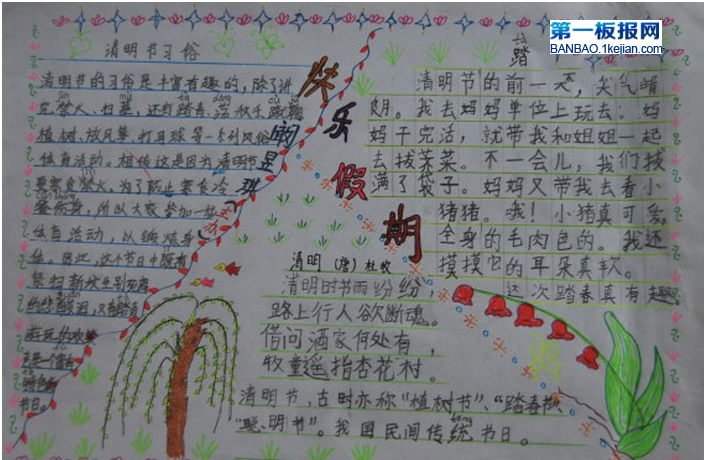 第一板报网
BANBAO.1kejian.com
清明节习俗
清明节的习俗是丰富有趣的,除了讲
究禁火、扫墓,还有踏青、荡秋千、蹴鞠、
植树、放风筝、打马球等一系列风俗
体育活动。相传这是因为清明节
要寒食禁火,为了防止寒食冷
餐伤身,所以大家参加一些
体育活动,以锻炼身
体。因此,这个节日中既有
祭扫新坟生别死离
的悲酸泪,又有踏青
游玩的欢笑
节日。
快乐假期
踏
清明节的前一天,天气晴
朗。我去妈妈单位上玩去。妈
妈干完活,就带我和姐姐一起
去拔荠菜。不一会儿,我们拔
满了袋子。妈妈又带我去看小
猪猪。哦!小猪真可爱,
全身的毛肉色的。我还
摸摸它的耳朵真软。
这次踏春真有趣
清明 (唐) 杜牧
清明时节雨纷纷,
路上行人欲断魂。
借问酒家何处有,
牧童遥指杏花村。
清明节,古时亦称“植树节”、“踏春节”
“聪明节”。我国民间传统节日。